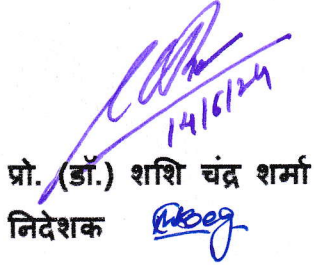 14/6/24
प्रो. (डॉ.) शशि चंद्र शर्मा
निदेशक